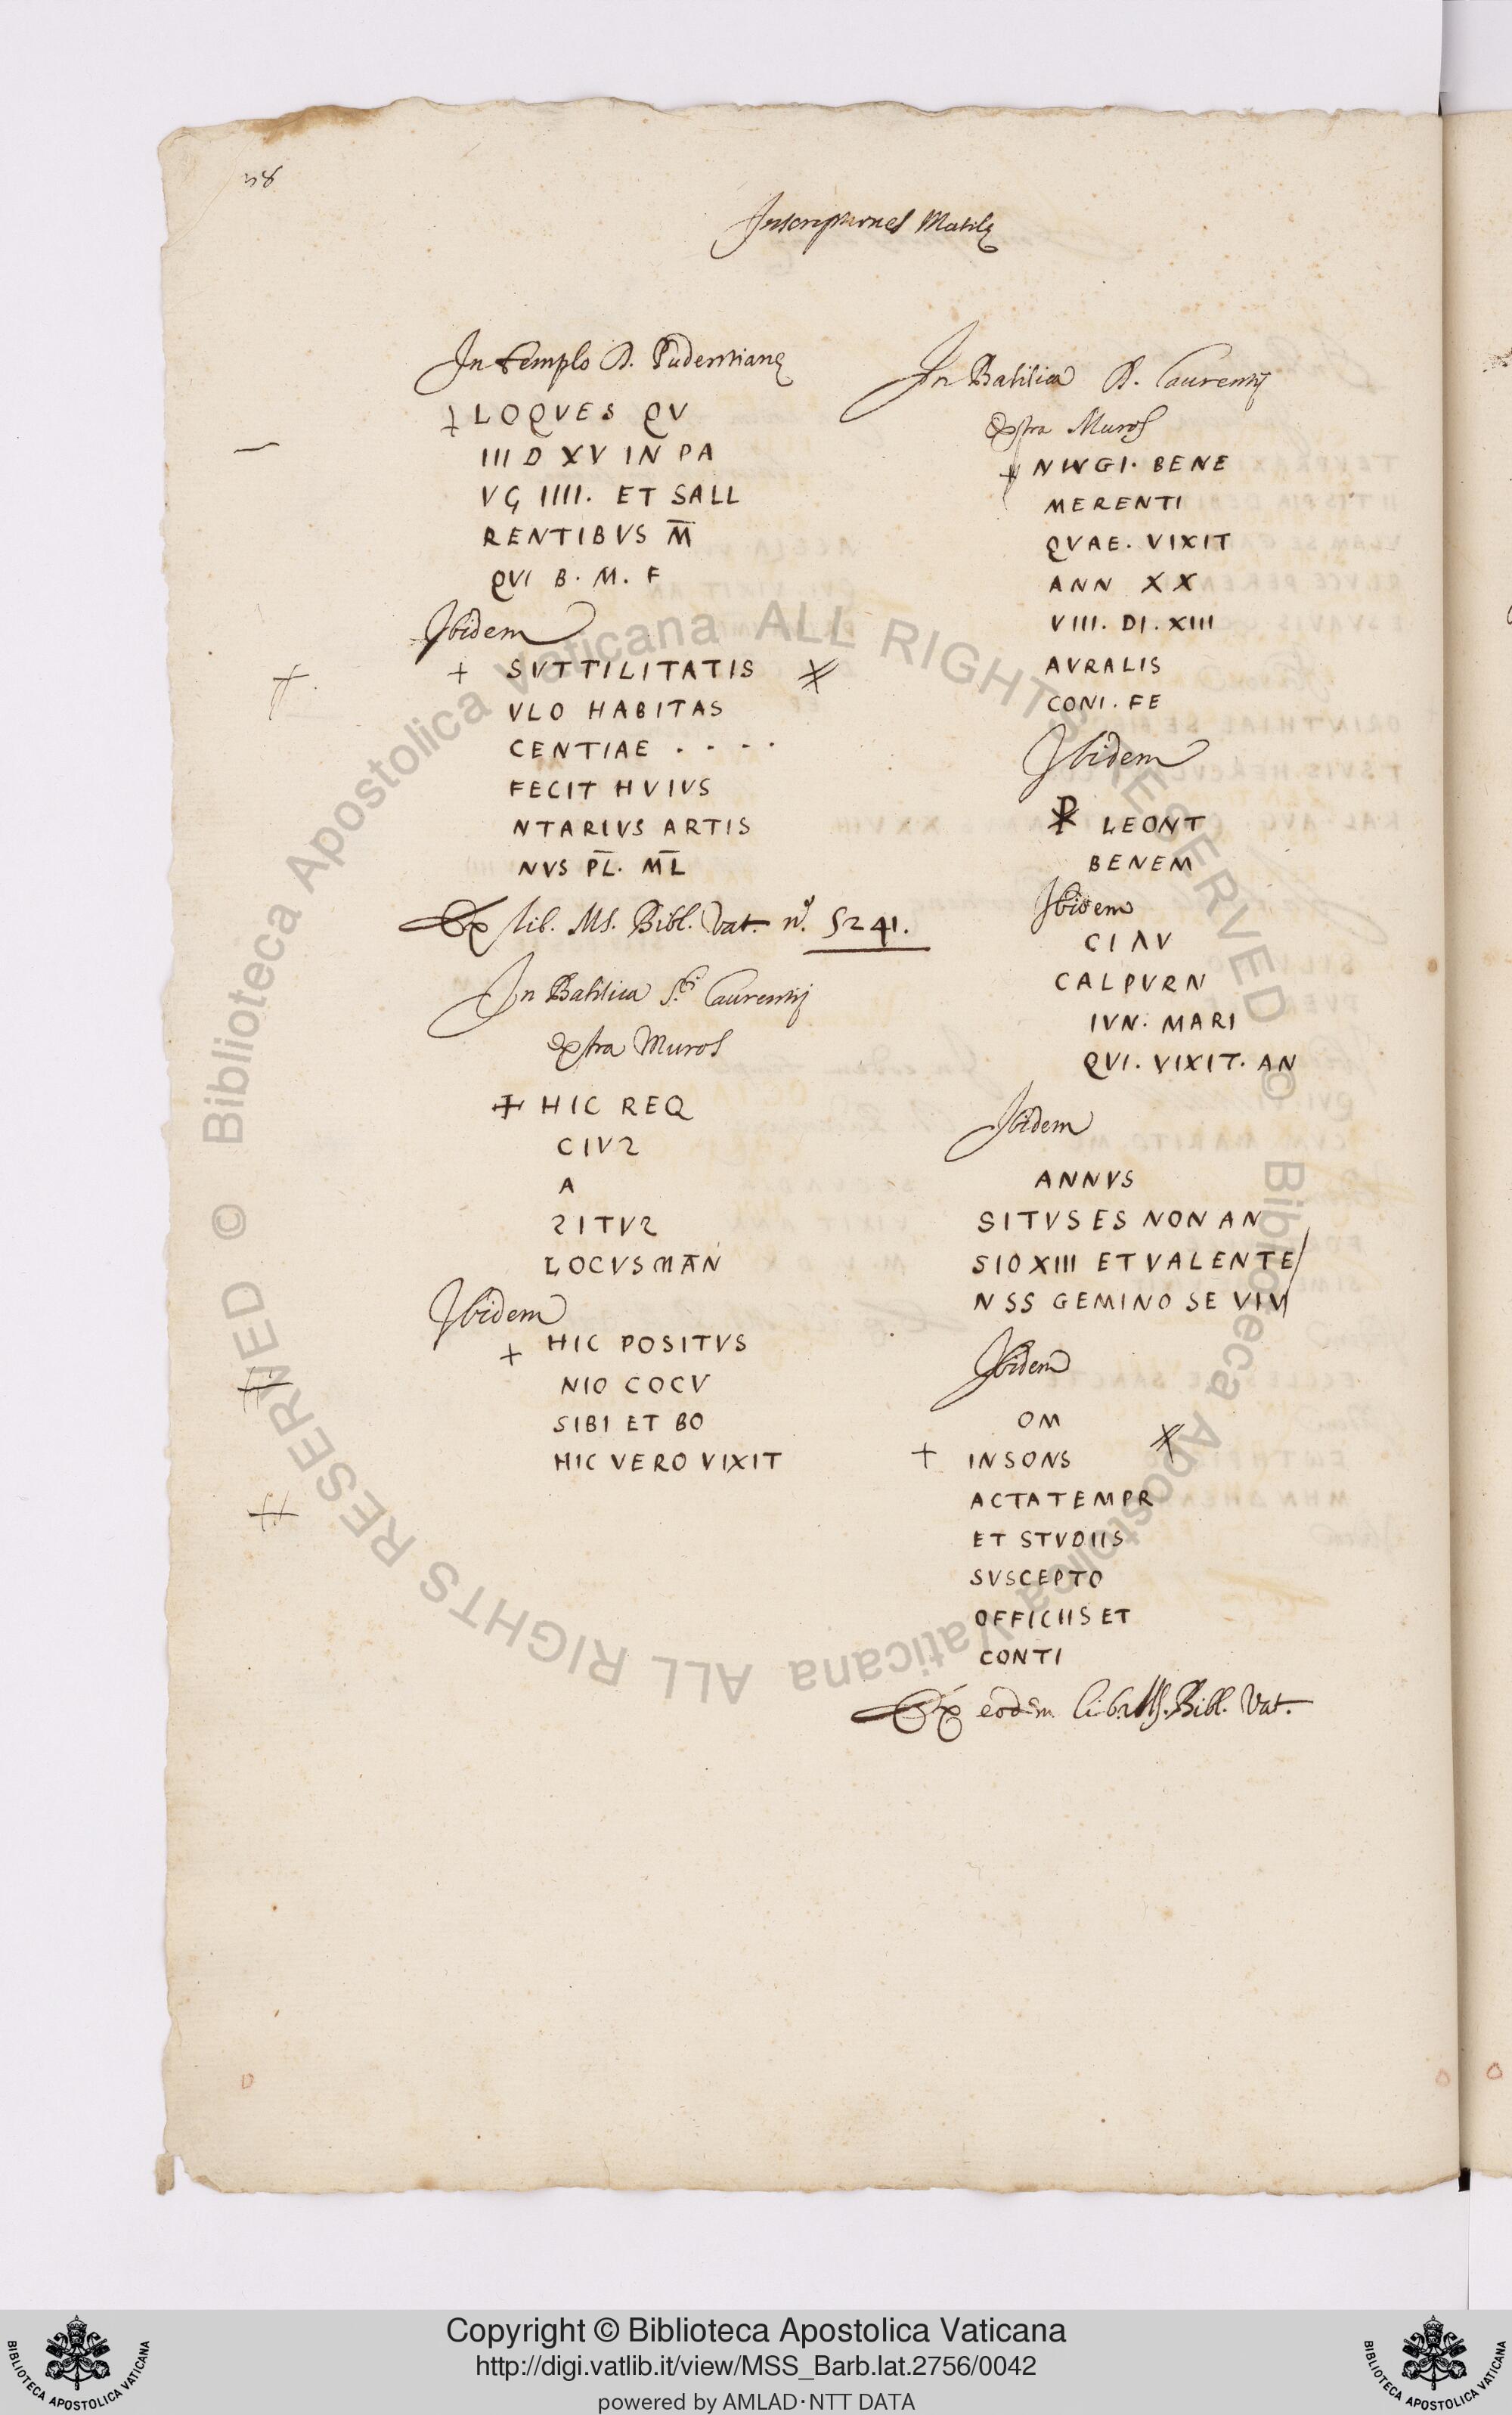 38
Inscriptiones Mutilę
In templo D. Pudentianę
LOQVES QV
III D XV IN PA
VG IIII. ET SALL
RENTIBVS M̅
QVI B. M. F
Ibidem
+ SVTTILITATIS
VLO HABITAS
CENTIAE . . . .
FECIT HVIVS
NTARIVS ARTIS
NVS P̅L̅. M̅L̅
Ex lib. Ms. Bibl. Vat. n.º 5241.
In Basilica S.ti Laurentij
extra Muros
+ HIC REQ
CIVS
A
SITVS
LOCVS MA̅N
Ibidem
+ HIC POSITVS
NIO COCV
SIBI ET BO
HIC VERO VIXIT
In Basilica D. Laurentij
extra Muros
NWGI. BENE
MERENTI
QVAE. VIXIT
ANN XX
VIII. DI. XIII
AVRALIS
CONI. FE
Ibidem
☧ LEONT
BENEM
Ibidem
CIΛV
CALPVRN
IVN. MARI
QVI. VIXIT. AN
Ibidem
ANNVS
SITVS ES NON AN
SIO XIII ET VALENTE
NSS GEMINO SE VIV
Ibidem
OM
+ INSONS
ACTATEMPR
ET STVDIIS
SVSCEPTO
OFFICIIS ET
CONTI
Ex eodem lib. Ms. Bibl. Vat.
© Biblioteca Apostolica Vaticana ALL RIGHTS RESERVED © Biblioteca Apostolica Vaticana ALL RIGHTS RESERVED
Copyright © Biblioteca Apostolica Vaticana
http://digi.vatlib.it/view/MSS_Barb.lat.2756/0042
powered by AMLAD·NTT DATA
BIBLIOTECA APOSTOLICA VATICANA
BIBLIOTECA APOSTOLICA VATICANA